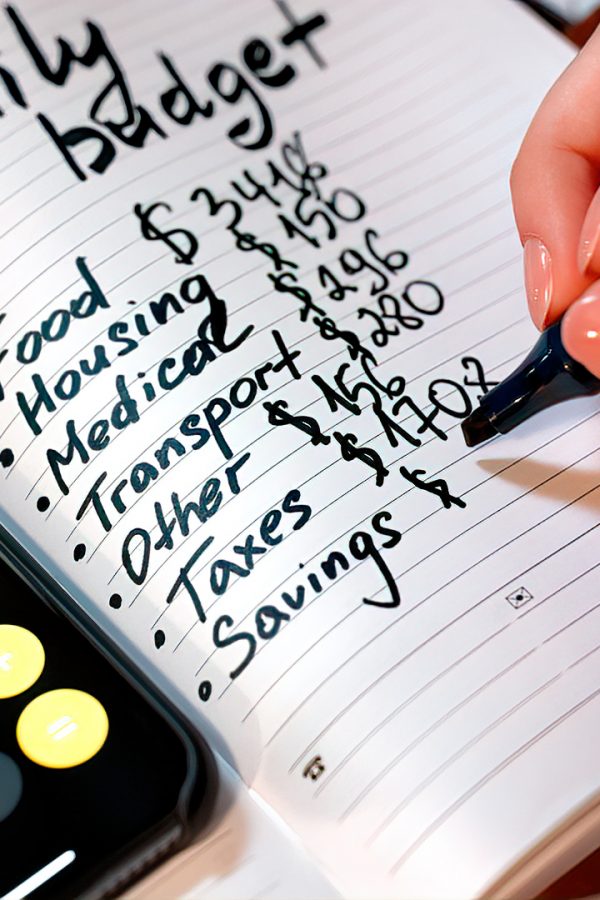 ily
budget
Food $ 3418
Housing $ 150
Medical $ 296
Transport $ 280
Other $ 156
Taxes $
Savings $